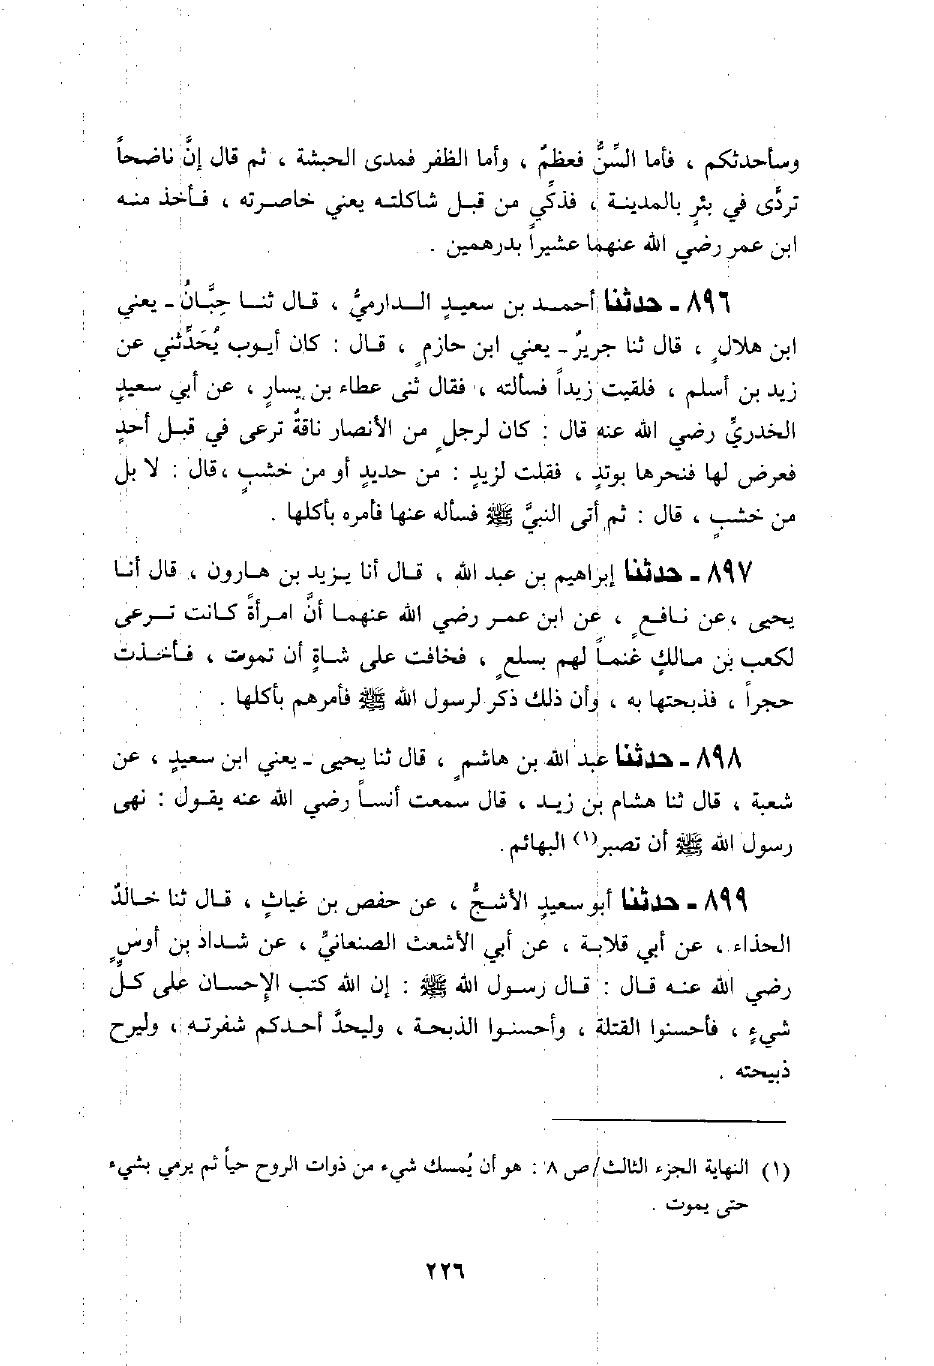 وسأحدثكم ، فأما السِّنُّ فعظمٌ ، وأما الظفر فمدى الحبشة ، ثم قال إنَّ ناضحاً
تردَّى في بئرٍ بالمدينة ، فذكِّي من قبل شاكلته يعني خاصرته ، فأخذ منه
ابن عمر رضي الله عنهما عشيراً بدرهمين .
٨٩٦ - حدثنا أحمد بن سعيدٍ الدارميُّ ، قال ثنا حِبَّانُ - يعني
ابن هلالٍ ، قال ثنا جريرٌ - يعني ابن حازمٍ ، قال : كان أيوب يُحَدِّثني عن
زيد بن أسلم ، فلقيت زيداً فسألته ، فقال ثنى عطاء بن يسارٍ ، عن أبي سعيدٍ
الخدريِّ رضي الله عنه قال : كان لرجلٍ من الأنصار ناقةٌ ترعى في قبل أحدٍ
فعرض لها فنحرها بوتدٍ ، فقلت لزيدٍ : من حديدٍ أو من خشبٍ ،قال : لا بل
من خشبٍ ، قال : ثم أتى النبيَّ ﷺ فسأله عنها فأمره بأكلها .
٨٩٧ - حدثنا إبراهيم بن عبد الله ، قال أنا يزيد بن هارون ، قال أنا
يحيى ، عن نافعٍ ، عن ابن عمر رضي الله عنهما أنَّ امرأةً كانت ترعى
لكعب بن مالكٍ غنماً لهم بسلعٍ ، فخافت على شاةٍ أن تموت ، فأخذت
حجراً ، فذبحتها به ، وأن ذلك ذكر لرسول الله ﷺ فأمرهم بأكلها .
٨٩٨ - حدثنا عبد الله بن هاشمٍ ، قال ثنا يحيى - يعني ابن سعيدٍ ، عن
شعبة ، قال ثنا هشام بن زيد ، قال سمعت أنساً رضي الله عنه يقول : نهى
رسول الله ﷺ أن تصبر(١) البهائم.
٨٩٩ - حدثنا أبو سعيدٍ الأشجُّ ، عن حفص بن غياثٍ ، قال ثنا خالدٌ
الحذاء ، عن أبي قلابة ، عن أبي الأشعث الصنعانيِّ ، عن شداد بن أوسٍ
رضي الله عنه قال : قال رسول الله ﷺ : إن الله كتب الإحسان على كلِّ
شيءٍ ، فأحسنوا القتلة ، وأحسنوا الذبحة ، وليحدَّ أحدكم شفرته ، وليرح
ذبيحته .
(١) النهاية الجزء الثالث/ص ٨ : هو أن يُمسك شيء من ذوات الروح حياً ثم يرمي بشيء
حتى يموت .
٢٢٦